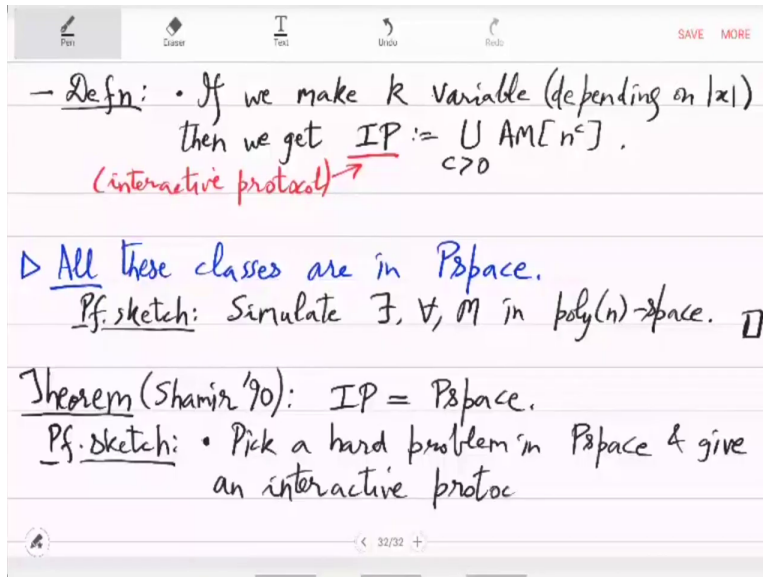 Pen Eraser Text Undo Redo SAVE MORE
- Defn: • If we make k variable (depending on |x|)
then we get IP := ⋃ AM[n^c].
c>0
(interactive protocol)→
▷ All these classes are in Pspace.
Pf. sketch: Simulate ∃, ∀, M in poly(n)-space. □
Theorem (Shamir '90): IP = Pspace.
Pf. sketch: • Pick a hard problem in Pspace & give
an interactive protoc
< 32/32 +